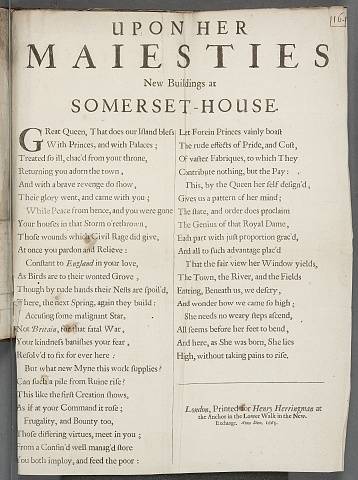 161
UPON HER
MAIESTIES
New Buildings at
SOMERSET-HOUSE.
GReat Queen, That does our Iſland bleſs
With Princes, and with Palaces;
Treated ſo ill, chac'd from your throne,
Returning you adorn the town,
And with a brave revenge do ſhow,
Their glory went, and came with you;
While Peace from hence, and you were gone
Your houſes in that Storm o'rethrown,
Thoſe wounds which Civil Rage did give,
At once you pardon and Relieve:
Conſtant to England in your love,
As Birds are to their wonted Grove,
Though by rude hands their Neſts are ſpoil'd,
There, the next Spring, again they build:
Accuſing ſome malignant Star,
Not Britain, for that fatal War,
Your kindneſs baniſhes your fear,
Reſolv'd to fix for ever here:
But what new Myne this work ſupplies?
Can ſuch a pile from Ruine riſe?
This like the firſt Creation ſhows,
As if at your Command it roſe;
Frugality, and Bounty too,
Thoſe differing virtues, meet in you;
From a Confin'd well manag'd ſtore
You both imploy, and feed the poor:
Let Forein Princes vainly boaſt
The rude effects of Pride, and Coſt,
Of vaſter Fabriques, to which They
Contribute nothing, but the Pay:
This, by the Queen her ſelf deſign'd,
Gives us a pattern of her mind;
The ſtate, and order does proclaim
The Genius of that Royal Dame,
Each part with juſt proportion grac'd,
And all to ſuch advantage plac'd
That the fair view her Window yields,
The Town, the River, and the Fields
Entring, Beneath us, we deſcry,
And wonder how we came ſo high;
She needs no weary ſteps aſcend,
All ſeems before her feet to bend,
And here, as She was born, She lies
High, without taking pains to riſe.
London, Printed for Henry Herringman at
the Anchor in the Lower Walk in the New
Exchange. Anno Dom. 1665.